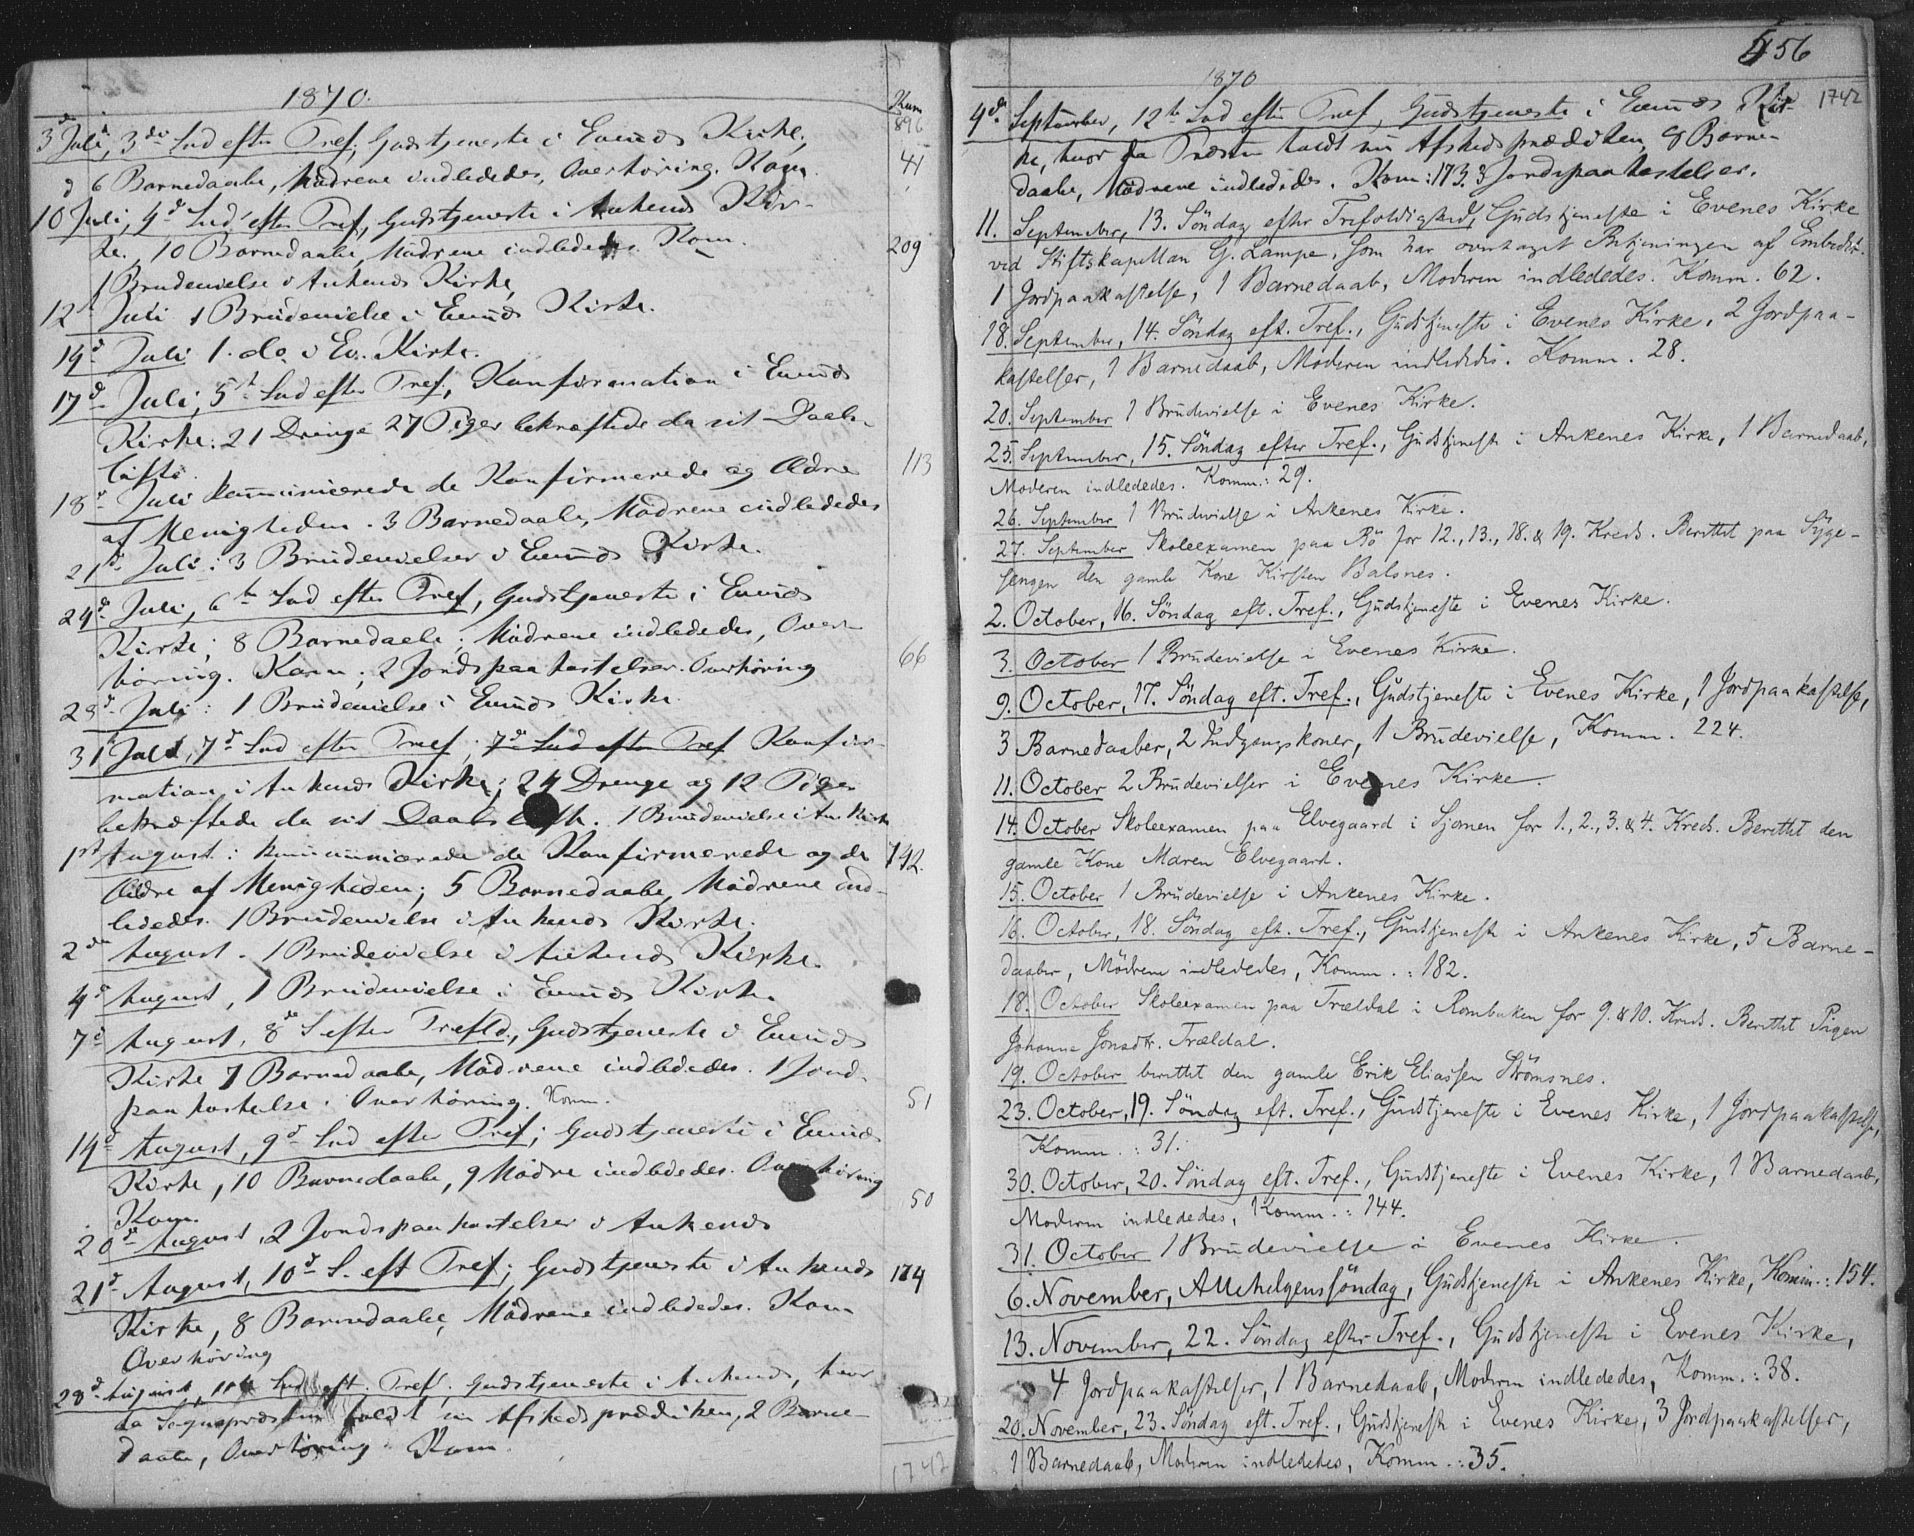 1870.
Kom
896
3d Juli, 3die Snd efter Tref; Gudstjeneste i Evenæs Kirke,
6 Barnedaabe, Mødrene indlededes, Overhøring. Kom. 41
10 Juli, 4d Snd efter Tref, Gudstjeneste i Ankenæs Kir-
ke, 10 Barnedaabe, Mødrene indlededes. Kom. 209
1 Brudevielse i Ankenæs Kirke,
12t Juli 1 Brudevielse i Evenæs Kirke.
14d Juli 1 do i Ev. Kirke.
17d Juli, 5t Snd efter Tref, Konfirmation i Evenæs
Kirke: 21 Drenge 27 Piger bekræftede da sit Daabs-
løfte.
18d Juli kommunicerede de Konfirmerede og Ældre 113
af Menigheden. 3 Barnedaabe, Mødrene indlededes
21d Juli: 3 Brudevielser i Evenæs Kirke.
24d Juli, 6te Snd efter Tref, Gudstjeneste i Evenæs
Kirke; 8 Barnedaabe; Mødrene indlededes, Over-
høring. Kom; 2 Jordspaakastelser. Overhøring 66
28d Juli: 1 Brudevielse i Evenæs Kirke
31 Juli, 7d Snd efter Tref; 7d Snd efter Tref Konfir-
mation i Ankenæs Kirke; 24 Drenge og 12 Piger
bekræftede da sit Daabsløfte. 1 Brudevielse i Ank. Kirke
1st August: kommunicerede de Konfirmerede og de 142.
Ældre af Menigheden; 5 Barnedaabe, Mødrene ind-
ledede. 1 Brudevielse i Ankenæs Kirke.
2den August. 1 Brudevielse i Ankenæs Kirke.
4d August, 1 Brudevielse i Evenæs Kirke.
7d August, 8de S efter Trefld., Gudstjeneste i Evenæs
Kirke 7 Barnedaabe, Mødrene indlededes. 1 Jord-
paakastelse. Overhøring. Komm. 51
14d August, 9d Snd efter Tref; Gudstjeneste i Evenæs
Kirke, 10 Barnedaabe, 9 Mødre indlededes. Overhøring
Kom. 50
20d August, 2 Jordspaakastelser i Ankenæs
21d August, 10d S. eft Tref; Gudstjeneste i Ankenæs 174
Kirke, 8 Barnedaabe, Mødrene indlededes. Kom
Overhøring
28d August, 11te Snd eft. Tref. Gudstjeneste i Ankenæs, hvor
da Sognepræsten holdt sin Afskedsprædiken, 2 Barne-
daabe, Overhøring. Kom.
1742
456
1870
1742
4de September, 12te Snd efter Tref, Gudstjeneste i Evenæs Kir-
ke, hvor da Præsten holdt sin Afskedsprædiken, 9 Barne-
daabe, Mødrene indlededes. Kom: 173. 3 Jordspaakastelser.
11. September, 13. Söndag efter Trefoldighed, Gudstjeneste i Evenes Kirke
ved Stiftskapellan G. Lampe, som har overtaget Betjeningen af Embedet.
1 Jordpaakastelse, 1 Barnedaab, Moderen indlededes. Komm. 62.
18. September, 14. Söndag eft. Tref., Gudstjeneste i Evenes Kirke. 2 Jordpaa-
kastelser, 1 Barnedaab, Moderen indlededes. Komm. 28.
20. September 1 Brudevielse i Evenes Kirke.
25. September, 15. Söndag efter Tref., Gudstjeneste i Ankenes Kirke, 1 Barnedaab,
Moderen indlededes. Komm.: 29.
26. September 1 Brudevielse i Ankenes Kirke.
27. September Skoleexamen paa Bö for 12., 13., 18. & 19. Kreds. Berettet paa Syge-
sengen den gamle Kone Kirsten Balsnes.
2. October, 16. Söndag eft. Tref., Gudstjeneste i Evenes Kirke.
3. October 1 Brudevielse i Evenes Kirke.
9. October, 17. Söndag eft. Tref., Gudstjeneste i Evenes Kirke, 1 Jordpaakastelse,
3 Barnedaaber, 2 Indgangskoner, 1 Brudevielse, Komm. 224.
11. October 2 Brudevielser i Evenes Kirke.
14. October Skoleexamen paa Elvegaard i Sjomen for 1., 2., 3. & 4. Kreds. Berettet den
gamle Kone Maren Elvegaard.
15. October 1 Brudevielse i Ankenes Kirke.
16. October, 18. Söndag eft. Tref., Gudstjeneste i Ankenes Kirke, 5 Barne-
daaber, Mödrene indlededes, Komm.: 182.
18. October Skoleexamen paa Trældal i Rombaken for 9. & 10. Kreds. Berettet Pigen
Johanna Jonsdtr. Trældal.
19. October berettet den gamle Erik Eliassen Strömsnes.
23. October, 19. Söndag eft. Tref., Gudstjeneste i Evenes Kirke, 1 Jordpaakastelse,
Komm.: 31.
30. October, 20. Söndag eft. Tref., Gudstjeneste i Evenes Kirke, 1 Barnedaab,
Moderen indlededes, Komm.: 144.
31. October 1 Brudevielse i Evenes Kirke.
6. November, Allehelgenssöndag, Gudstjeneste i Ankenes Kirke, Komm.: 154.
13. November, 22. Söndag efter Tref., Gudstjeneste i Evenes Kirke,
4 Jordpaakastelser, 1 Barnedaab, Moderen indlededes, Komm.: 38.
20. November, 23. Söndag eft. Tref., Gudstjeneste i Evenes Kirke, 3 Jordpaakastelser,
1 Barnedaab, Moderen indlededes, Komm.: 35.